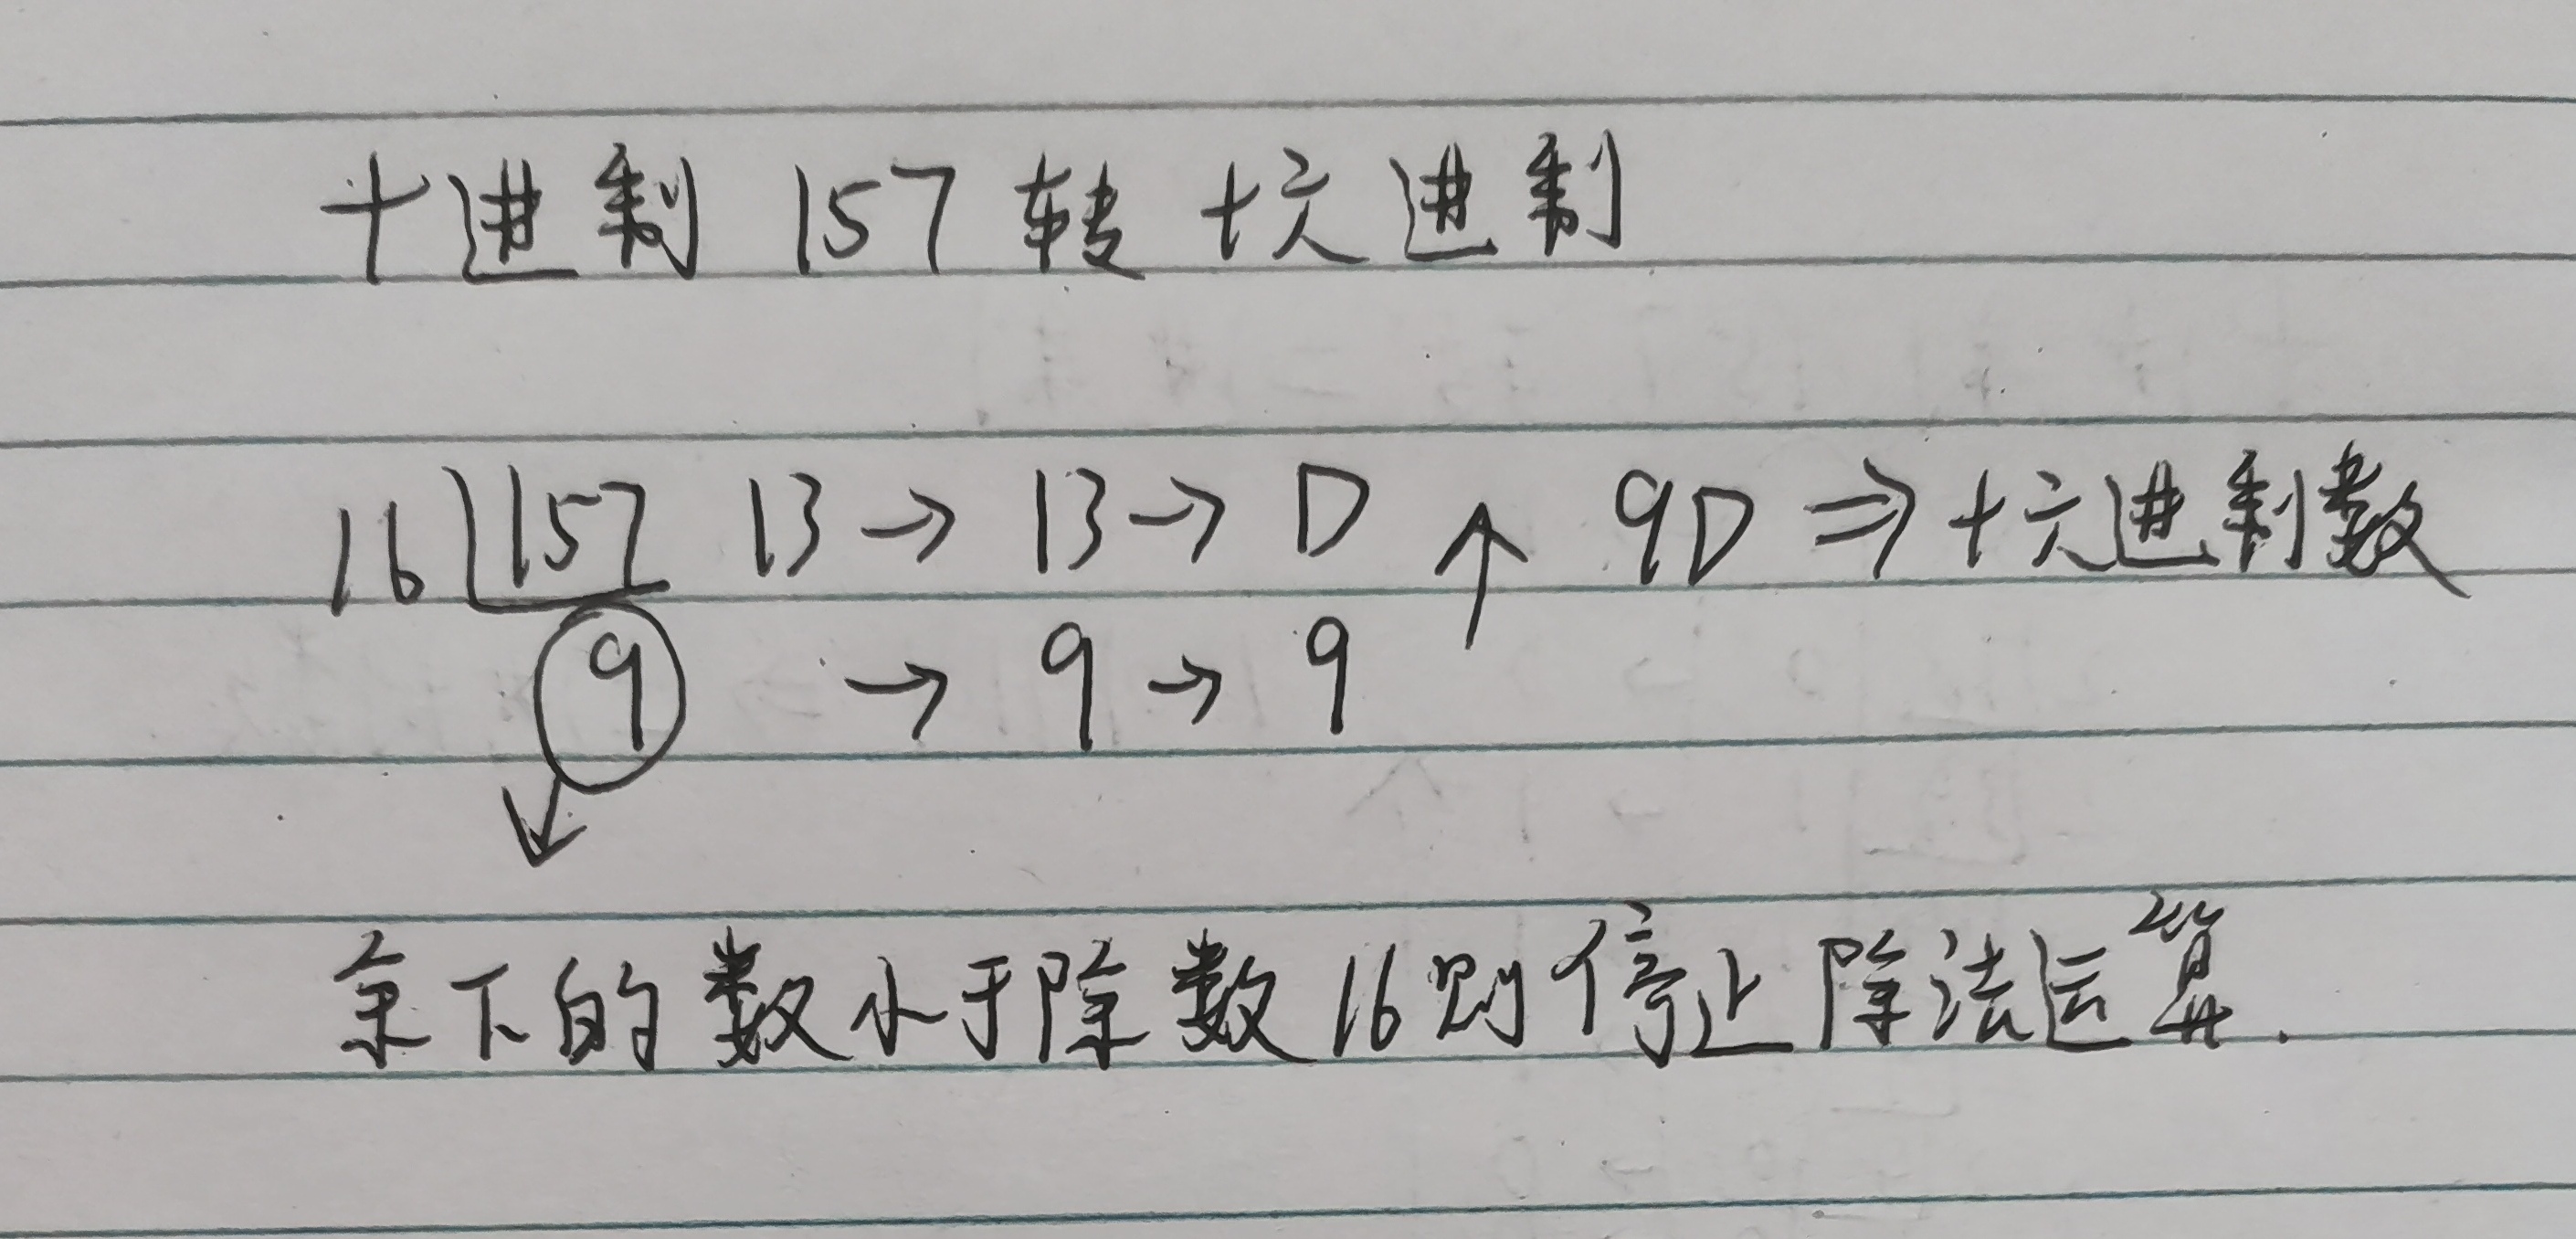 十进制 157 转十六进制
16 157 13 → 13 → D ↑ 9D ⇒ 十六进制数
9 → 9 → 9
余下的数小于除数16则停止除法运算.